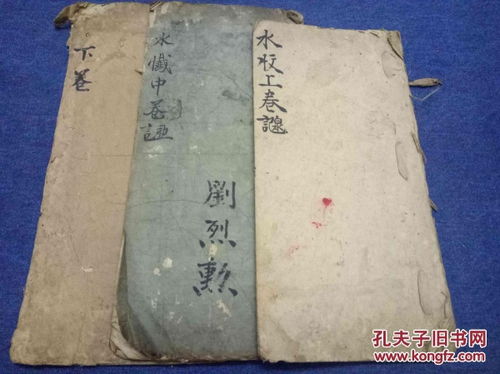 水收工卷
水懺中卷
劉烈勲
下卷
孔夫子旧书网
www.kongfz.com